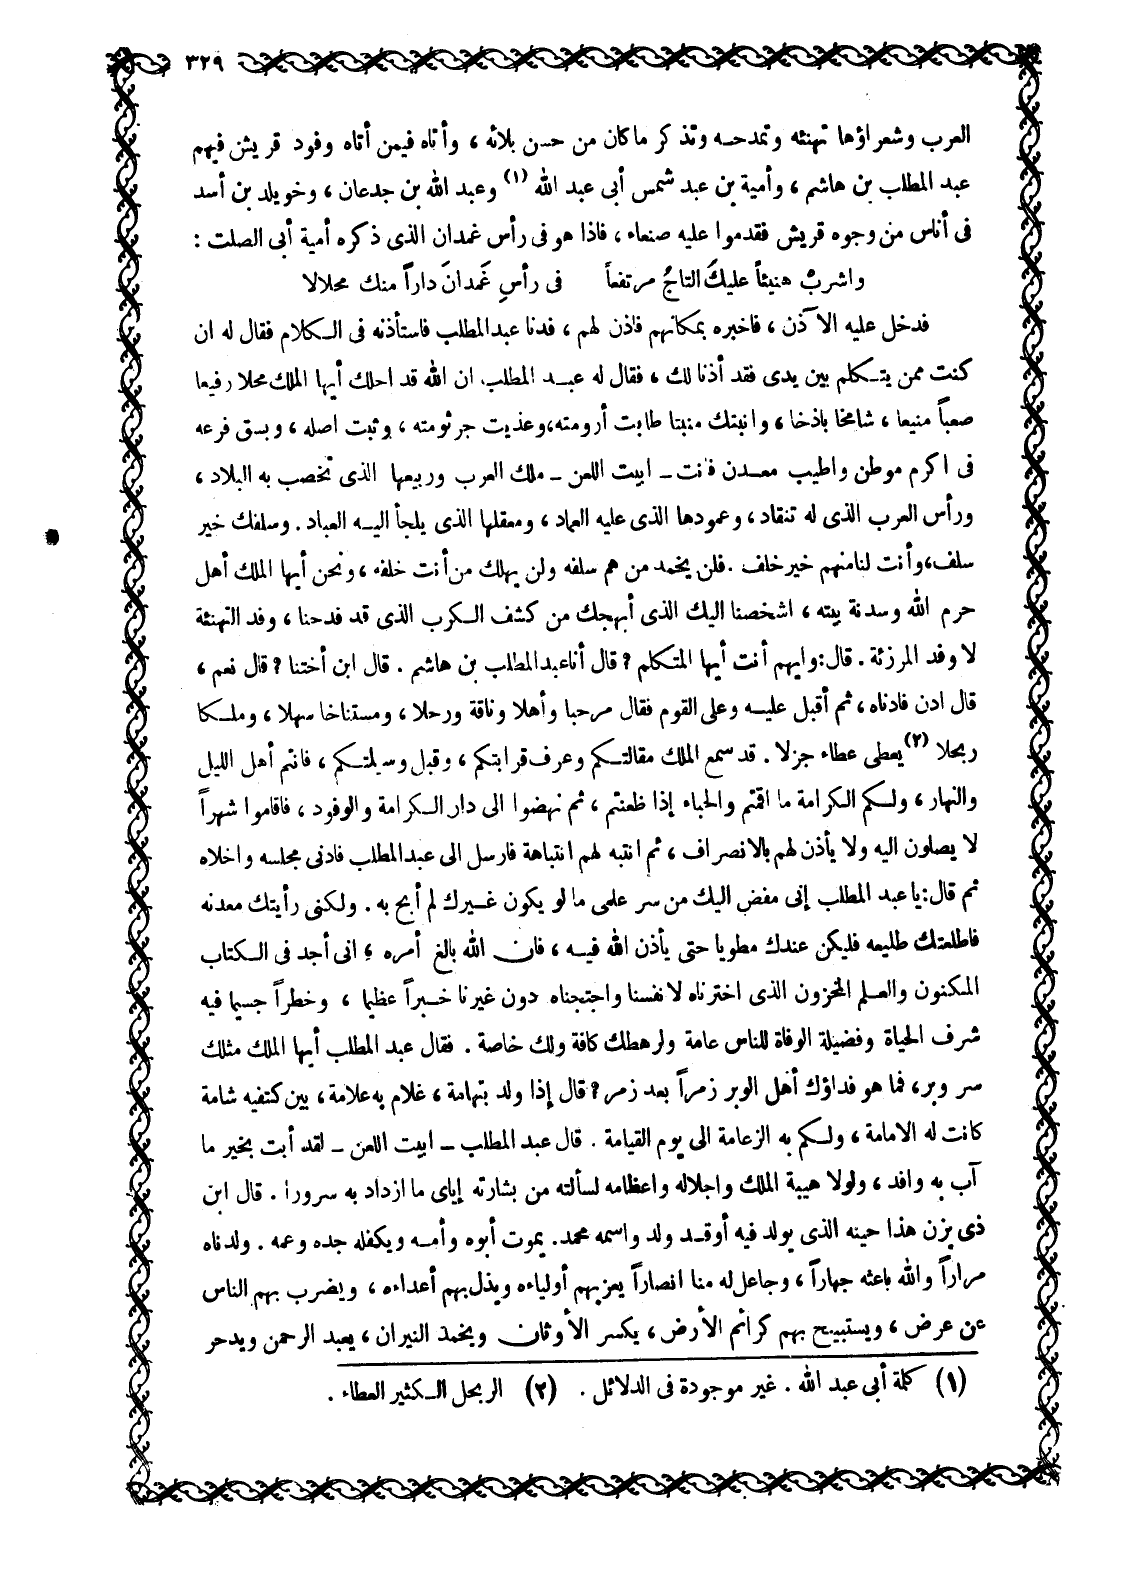 ٣٢٩
العرب وشعراؤها تهنئه وتمدحه وتذكر ماكان من حسن بلائه ، وأتاه فيمن أتاه وفود قريش فيهم
عبد المطلب بن هاشم ، وأمية بن عبد شمس أبى عبد الله (١) وعبد الله بن جدعان ، وخويلد بن أسد
فى أناس من وجوه قريش فقدموا عليه صنعاء ، فاذا هو فى رأس غمدان الذى ذكره أمية أبى الصلت :
واشربْ هنيئاً عليكَ التاجُ مرتفعاً فى رأسِ غَمدانَ داراً منك محلالا
فدخل عليه الآذن ، فاخبره بمكانهم فاذن لهم ، فدنا عبدالمطلب فاستأذنه فى الكلام فقال له ان
كنت ممن يتكلم بين يدى فقد أذنا لك ، فقال له عبد المطلب. ان الله قد احلك أيها الملك محلا رفيعا
صعباً منيعا ، شامخا باذخا ، وانبتك منبتا طابت أرومته، وعذيت جرثومته ، وثبت اصله ، وبسق فرعه
فى اكرم موطن واطيب معدن فانت ـ ابيت اللعن ـ ملك العرب وربيعها الذى تخصب به البلاد ،
ورأس العرب الذى له تنقاد ، وعمودها الذى عليه العماد ، ومعقلها الذى يلجأ اليه العباد . وسلفك خير
سلف، وأنت لنامنهم خير خلف . فلن يخمد من هم سلفه ولن يهلك من أنت خلفه ، ونحن أيها الملك أهل
حرم الله وسدنة بيته ، اشخصنا اليك الذى أبهجك من كشف الكرب الذى قد فدحنا ، وفد التهنئة
لا وفد المرزئة . قال: وايهم أنت أيها المتكلم ؟ قال أناعبدالمطلب بن هاشم . قال ابن أختنا ؟ قال نعم ،
قال ادن فادناه ، ثم أقبل عليه وعلى القوم فقال مرحبا وأهلا وناقة ورحلا ، ومستناخا سهلا ، وملكا
ربحلا (٢) يعطى عطاء جزلا . قد سمع الملك مقالتكم وعرف قرابتكم ، وقبل وسيلتكم ، فانتم أهل الليل
والنهار ، ولكم الكرامة ما اقمتم والحباء إذا ظعنتم ، ثم نهضوا الى دار الكرامة والوفود ، فاقاموا شهراً
لا يصلون اليه ولا يأذن لهم بالانصراف ، ثم انتبه لهم انتباهة فارسل الى عبدالمطلب فادنى مجلسه واخلاه
ثم قال: يا عبد المطلب إنى مفض اليك من سر علمى ما لو يكون غيرك لم أبح به . ولكنى رأيتك معدنه
فاطلعتك طليعه فليكن عندك مطويا حتى يأذن الله فيه ، فان الله بالغ أمره ؛ انى أجد فى الكتاب
المكنون والعلم المخزون الذى اخترناه لانفسنا واحتجناه دون غيرنا خبراً عظيما ، وخطراً جسيما فيه
شرف الحياة وفضيلة الوفاة للناس عامة ولرهطك كافة ولك خاصة . فقال عبد المطلب أيها الملك مثلك
سر وبر، فما هو فداؤك أهل الوبر زمراً بعد زمر ؟ قال إذا ولد بتهامة ، غلام به علامة ، بين كتفيه شامة
كانت له الامامة ، ولكم به الزعامة الى يوم القيامة . قال عبد المطلب ـ ابيت اللعن ـ لقد أبت بخير ما
آب به وافد ، ولولا هيبة الملك واجلاله واعظامه لسألته من بشارته إياى ما ازداد به سرورا . قال ابن
ذى يزن هذا حينه الذى يولد فيه أوقد ولد واسمه محمد. يموت أبوه وأمه ويكفله جده وعمه . ولدناه
مراراً والله باعثه جهاراً ، وجاعل له منا انصاراً يعزبهم أولياءه ويذل بهم أعداءه ، ويضرب بهم الناس
عن عرض ، ويستبيح بهم كرائم الأرض ، يكسر الأوثان ويخمد النيران ، يعبد الرحمن ويدحر
(١) كلمة أبى عبد الله . غير موجودة فى الدلائل . (٢) الربحل الكثير العطاء .